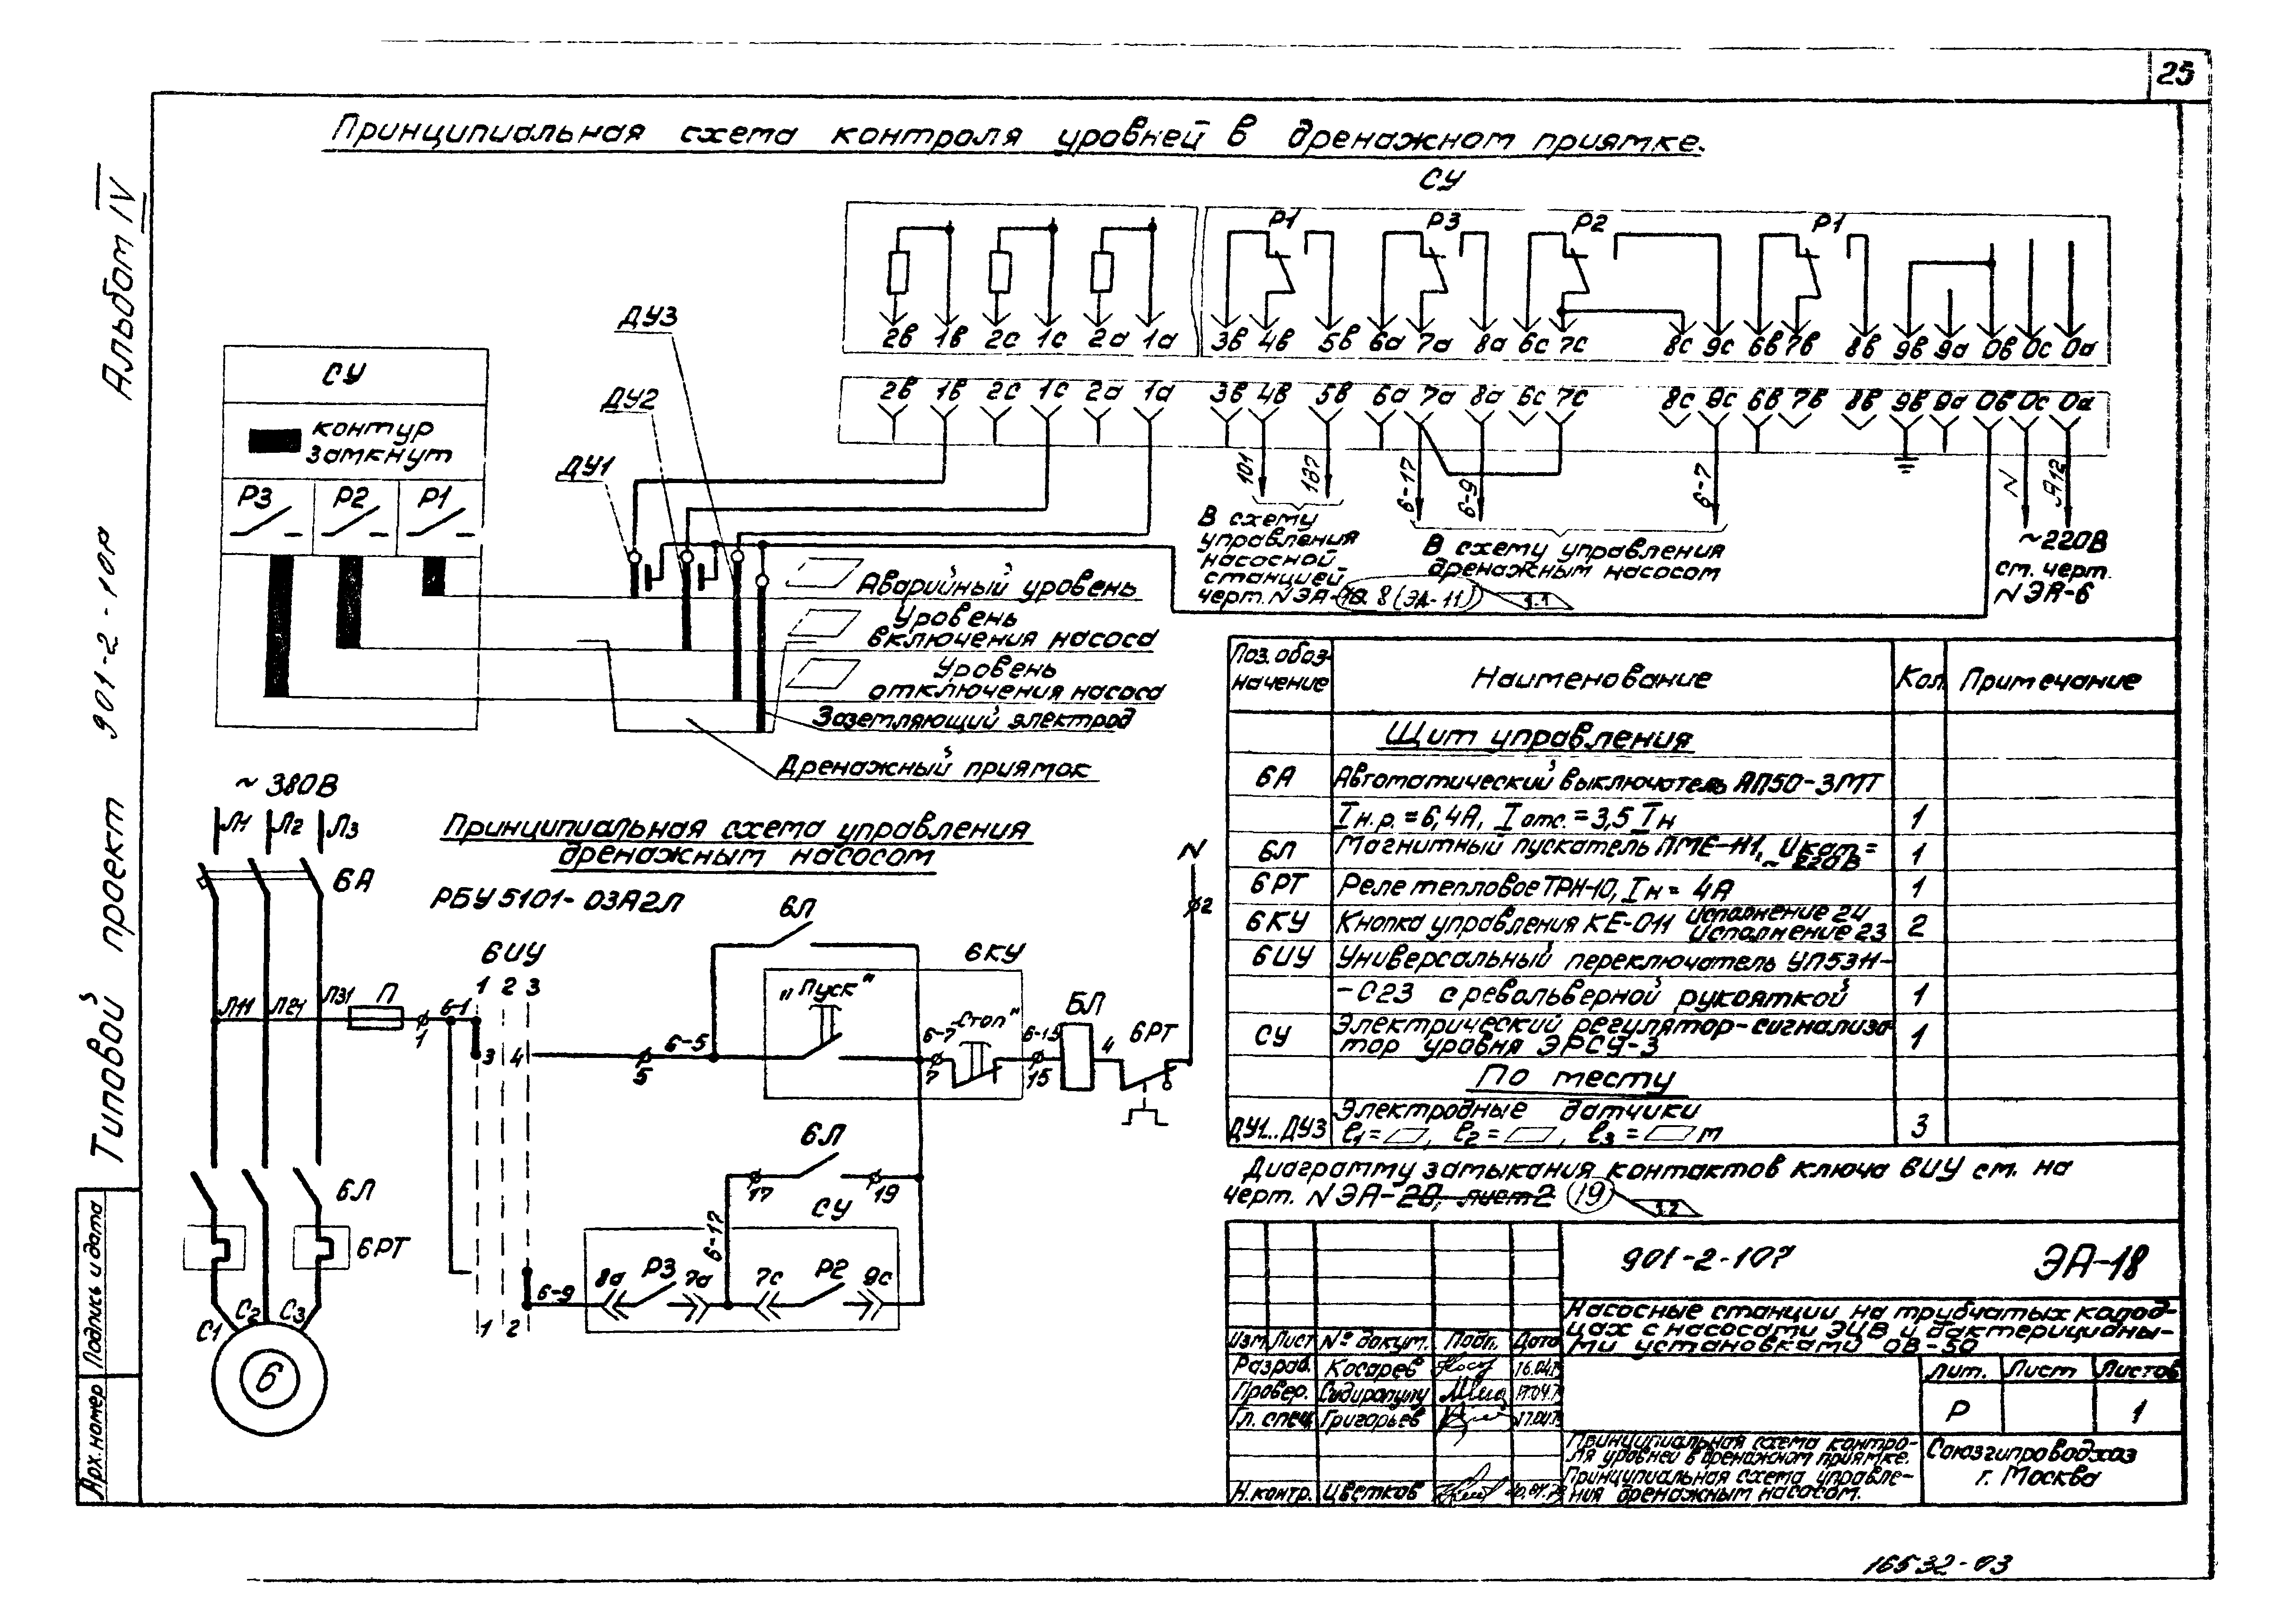 25
Принципиальная схема контроля уровней в дренажном приямке.
Альбом IV
Типовой проект 901-2-107
СУ
P1 P3 P2 P1
2в 1в 2с 1с 2а 1а 3в 4в 5в 6а 7а 8а 6с 7с 8с 9с 6в 7в 8в 9в 9а 0в 0с 0а
2в 1в 2с 1с 2а 1а 3в 4в 5в 6а 7а 8а 6с 7с 8с 9с 6в 7в 8в 9в 9а 0в 0с 0а
101 137 6-17 6-9 6-7 N А12
СУ
контур
замкнут
P3 P2 P1
ДУ3
ДУ2
ДУ1
В схему
управления
насосной
станцией
черт. N ЭА- 8 (ЭА-11) 1.1
В схему управления
дренажным насосом
~220В
см. черт.
N ЭА-6
Аварийный уровень
Уровень
включения насоса
Уровень
отключения насоса
Заземляющий электрод
Дренажный приямок
~ 380В
Л1 Л2 Л3
6А
Принципиальная схема управления
дренажным насосом
РБУ 5101-03А2Л
Л11 Л21 Л31 П 1 6-1
6ИУ
1 2 3
3 4
5 6-5
6Л
6КУ
„Пуск“
„Стоп“
6-7 7
6-15 15
БЛ
4
6РТ
N
2
6Л
17 19
6-17
СУ
6-9 8а P3 7а 7с P2 9с
1 2
6Л
6РТ
С1 С2 С3
6
Поз. обоз-
начение
Наименование
Кол.
Примечание
Щит управления
6А Автоматический выключатель АП50-3МТ
Iн.р.=6,4А, Iотс.=3,5 Iн 1
6Л Магнитный пускатель ПМЕ-111, Uкат.=
~ 220В 1
6РТ Реле тепловое ТРН-10, Iн= 4А 1
6КУ Кнопка управления КЕ-011 исполнение 24
исполнение 23 2
6ИУ Универсальный переключатель УП5311-
-С23 с револьверной рукояткой 1
СУ Электрический регулятор-сигнализа-
тор уровня ЭРСУ-3 1
По месту
ДУ1...ДУ3 Электродные датчики
ℓ1= , ℓ2= , ℓ3= м 3
Диаграмму замыкания контактов ключа 6ИУ см. на
черт. N ЭА-20, лист 2 19 1.2
901-2-107 ЭА-18
Насосные станции на трубчатых колод-
цах с насосами ЭЦВ и бактерицидны-
ми установками ОВ-50
Изм. Лист № докум. Подп. Дата
Разраб. Косарев 16.04.79
Провер. 17.04.79
Гл. спец. Григорьев 17.04.79
Н.контр. Цветков
Лит. Лист Листов
Р 1
Принципиальная схема контро-
ля уровней в дренажном приямке.
Принципиальная схема управле-
ния дренажным насосом.
Союзгипроводхоз
г. Москва
Подпись и дата
Арх. номер
16532-03